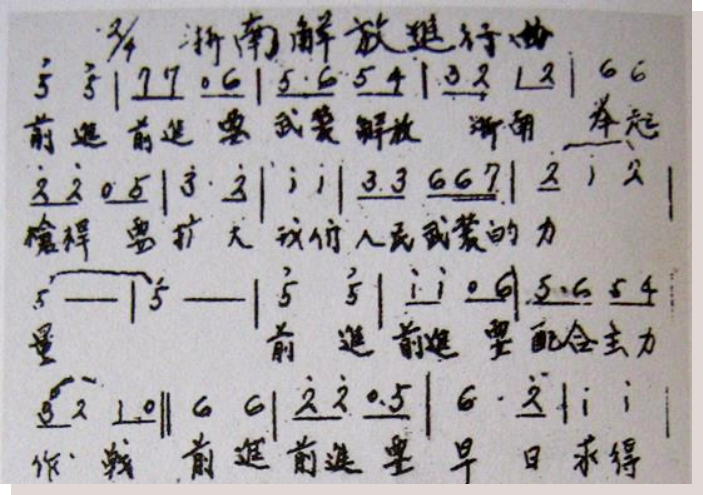 2/4 浙南解放進行曲
5 5 | 77 06 | 5·6 54 | 32 12 | 66
前進 前進 要 武裝 解放 浙南 举起
22 05 | 3·2 | ii | 33 667 | 2 i 2 |
槍桿 要扩大 我们人民武装的力
5 — | 5 — | 5 5 | ii 06 | 5·6 54
量 前進 前進 要 配合主力
32 10 || 6 6 | 22 0.5 | 6·2 | i i
作战 前進 前進 要 早日求得